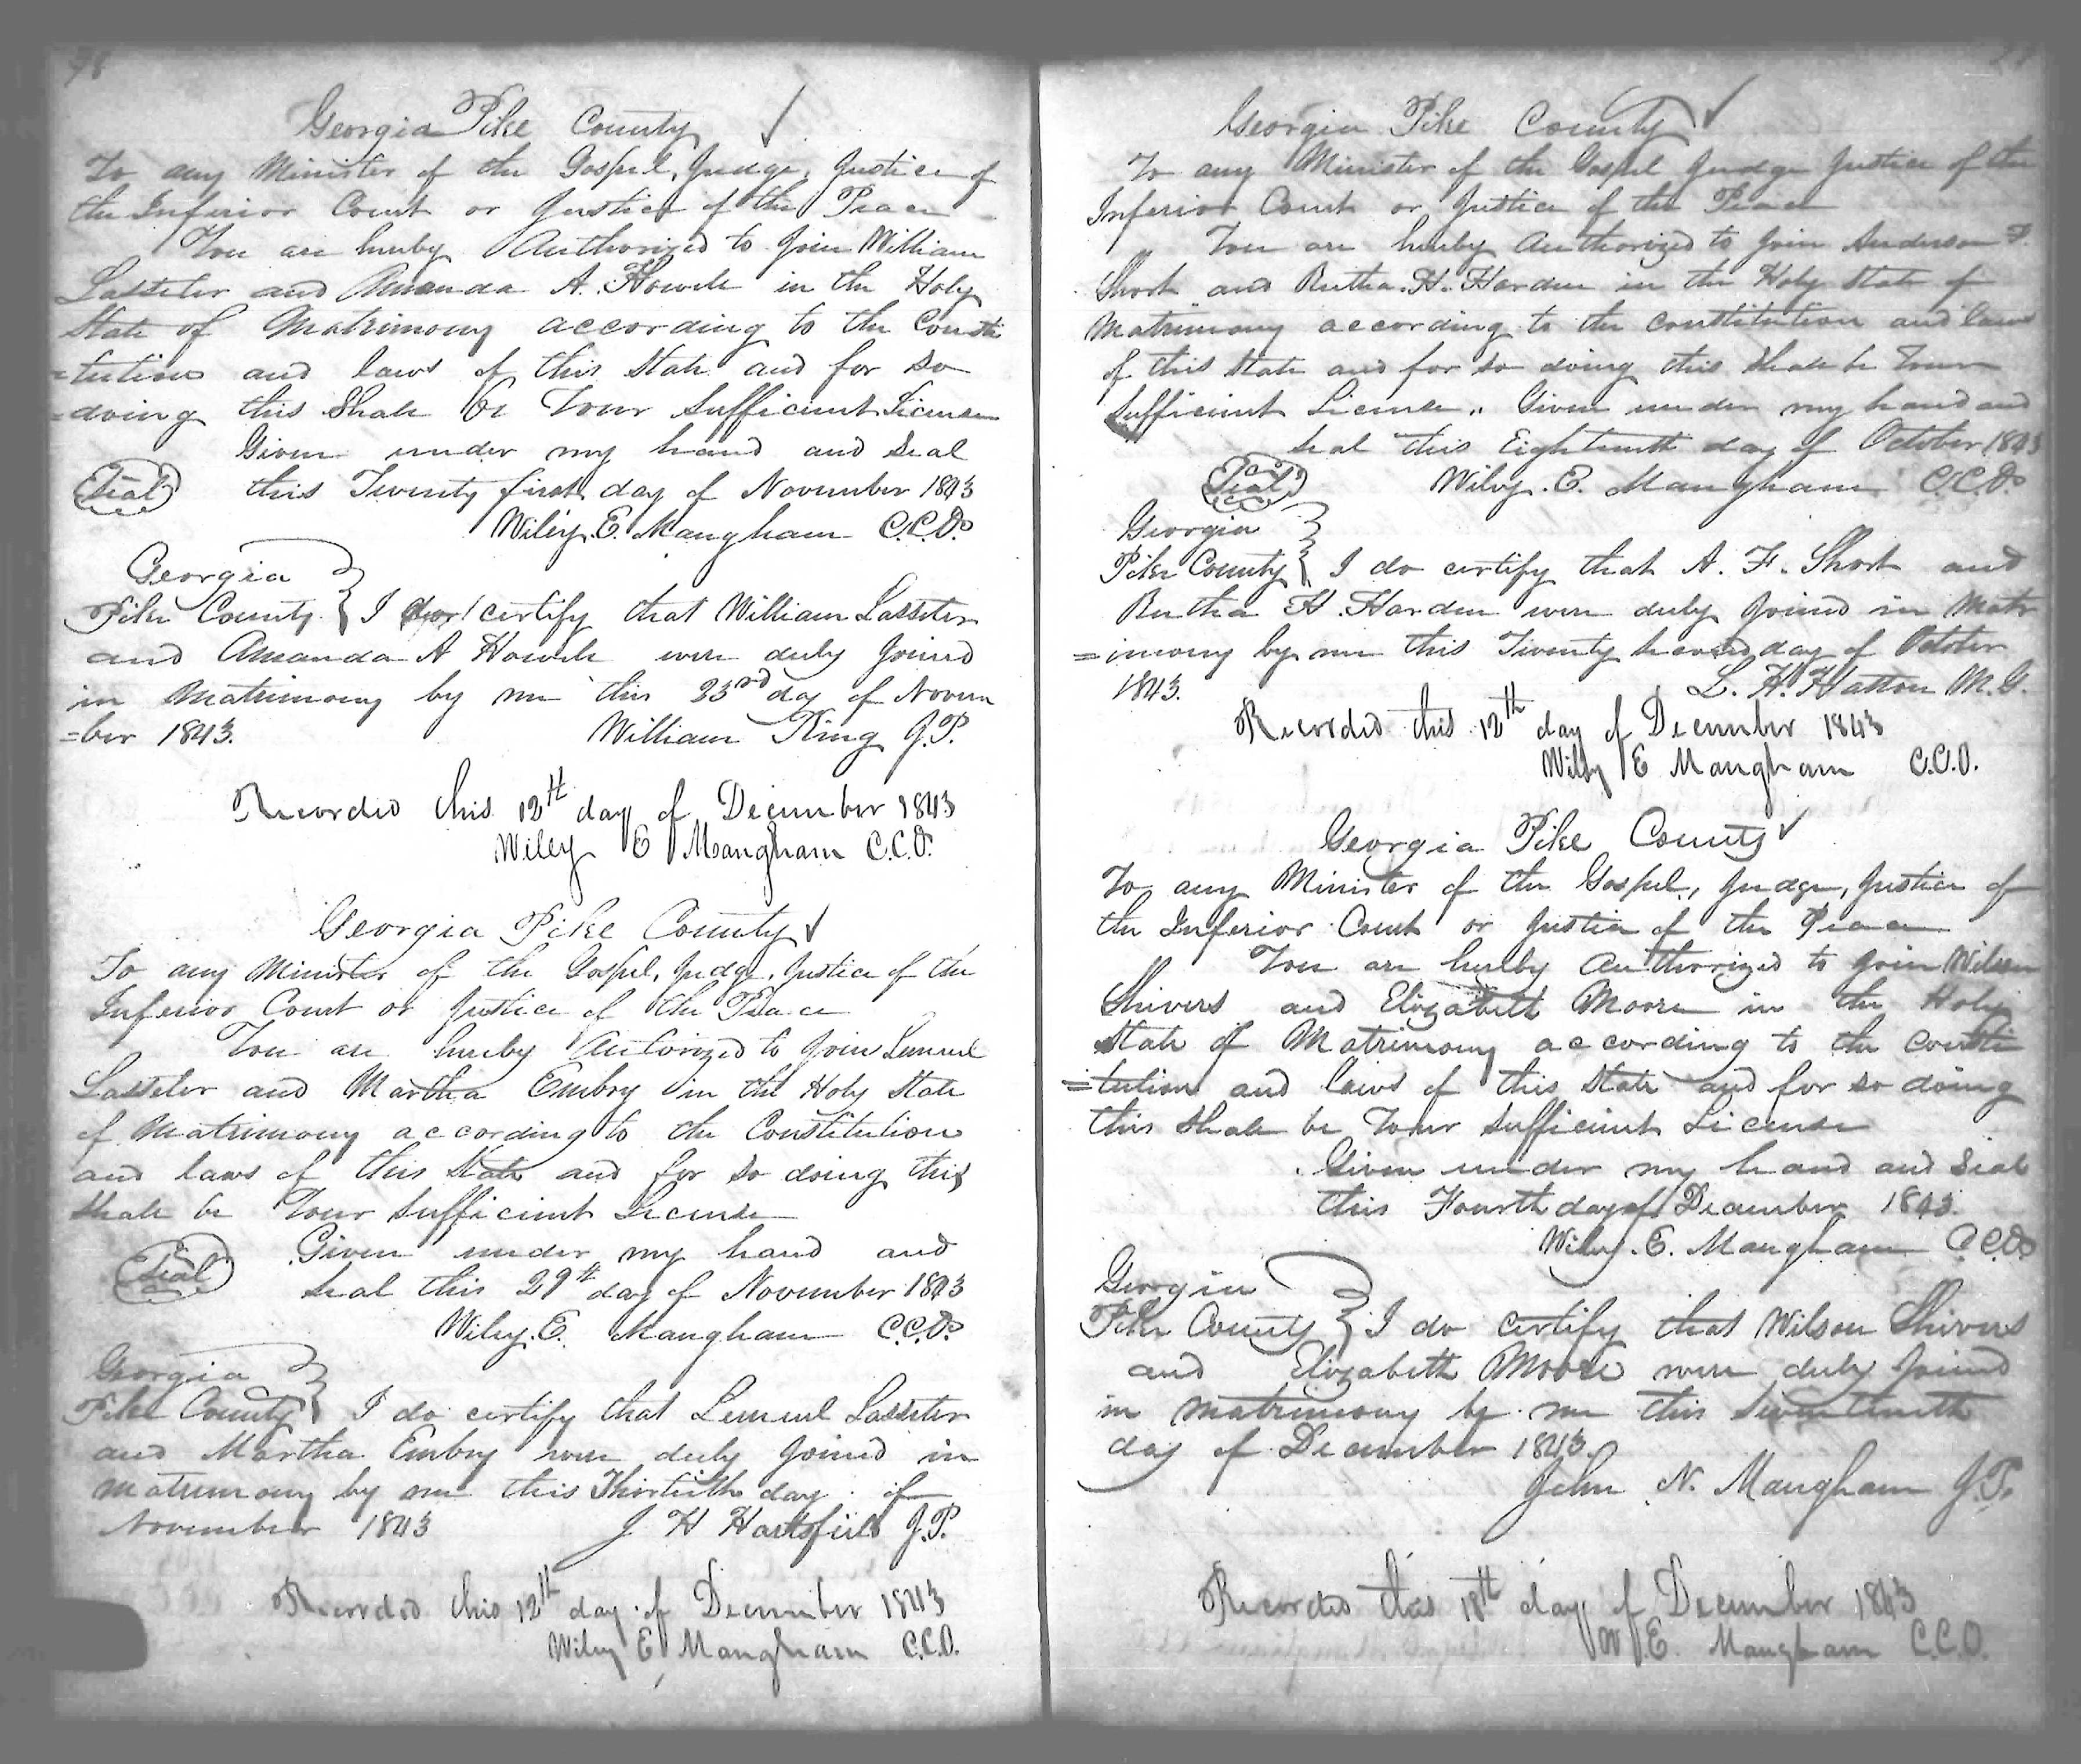 98
Georgia Pike County
To any Minister of the Gospel, Judge, Justice of
the Inferior Court or Justice of the Peace
You are hereby Authorized to Join William
Lasseter and Amanda A. Howell in the Holy
State of Matrimony according to the Consti
=tution and laws of this State and for so
=doing this Shall be Your Sufficient License
Given under my hand and Seal
Seal this Twenty first day of November 1843
Wiley. E. Mangham C.C.O.
Georgia
Pike County } I do certify that William Lasseter
and Amanda A Howell were duly Joined
in Matrimony by me this 23rd day of Novem
=ber 1843. William King J.P.
Recorded this 12th day of December 1843
Wiley E Mangham C.C.O.
Georgia Pike County
To any Minister of the Gospel, Judge, Justice of the
Inferior Court or Justice of the Peace
You are hereby Authorized to Join Lemuel
Lasseter and Martha Embry in the Holy State
of Matrimony according to the Constitution
and laws of this State and for so doing this
Shall be Your Sufficient License
Given under my hand and
Seal Seal this 29th day of November 1843
Wiley. E. Mangham C.C.O.
Georgia
Pike County } I do certify that Lemuel Lasseter
and Martha Embry were duly Joined in
matrimony by me this Thirtieth day of
November 1843 J H Hartsfield J.P.
Recorded this 12th day of December 1843
Wiley E Mangham C.C.O.
Georgia Pike County
To any Minister of the Gospel Judge Justice of the
Inferior Court or Justice of the Peace
You are hereby Authorized to Join Anderson F.
Short and Bertha. H. Harden in the Holy State of
Matrimony according to the constitution and laws
of this State and for so doing this Shall be Your
Sufficient License,, Given under my hand and
Seal this Eighteenth day of October 1843
Seal Wiley. E. Mangham C.C.O.
Georgia
Pike County } I do certify that A. F. Short and
Bertha H. Harden were duly Joined in Matr
=imony by me this Twenty second day of October
1843. L. H. Hatton M.G.
Recorded this 12th day of December 1843
Wiley E Mangham C.C.O.
Georgia Pike County
To any Minister of the Gospel, Judge, Justice of
the Inferior Court or Justice of the Peace
You are hereby Authorized to Join Wilson
Shivers and Elizabeth Moore in the Holy
State of Matrimony according to the consti
=tution and laws of this State and for so doing
this Shall be Your Sufficient License
Given under my hand and Seal
this Fourth day of December 1843.
Wiley. E. Mangham C.C.O.
Georgia
Pike County } I do certify that Wilson Shivers
and Elizabeth Moore were duly Joined
in matrimony by me this Seventeenth
day of December 1843.
John N. Mangham J.P.
Recorded this 18th day of December 1843
W E. Mangham C.C.O.